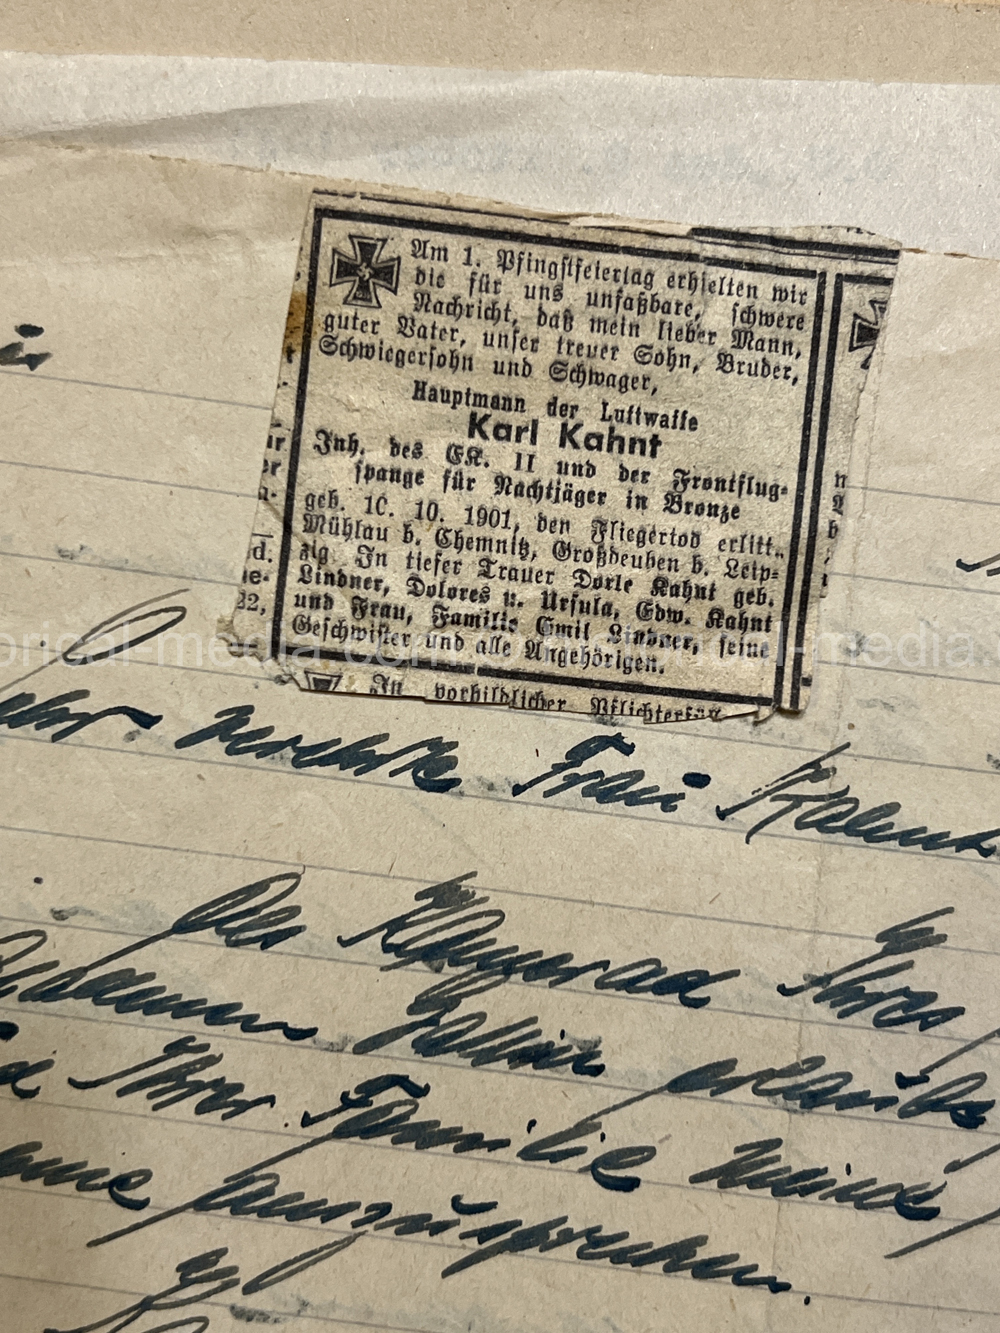 Am 1. Pfingstfeiertag erhielten wir
die für uns unfaßbare, schwere
Nachricht, daß mein lieber Mann,
guter Vater, unser treuer Sohn, Bruder,
Schwiegersohn und Schwager,
Hauptmann der Luftwaffe
Karl Kahnt
Inh. des EK. II und der Frontflug-
spange für Nachtjäger in Bronze
geb. 10. 10. 1901, den Fliegertod erlitt.
Mühlau b. Chemnitz, Großdeuben b. Leip-
zig. In tiefer Trauer Dorle Kahnt geb.
Lindner, Dolores u. Ursula, Edw. Kahnt
und Frau, Familie Emil Lindner, seine
Geschwister und alle Angehörigen.
In vorbildlicher Pflichterfül
d.
ie-
22,
verehrte Frau Kahnt
Als Kamerad Ihres
erlaube
Ihrer Familie meine
auszusprechen.